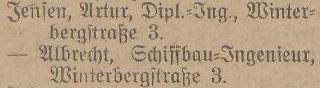 Jensen, Artur, Dipl.-Ing., Winter-
bergstraße 3.
— Albrecht, Schiffbau-Ingenieur,
Winterbergstraße 3.